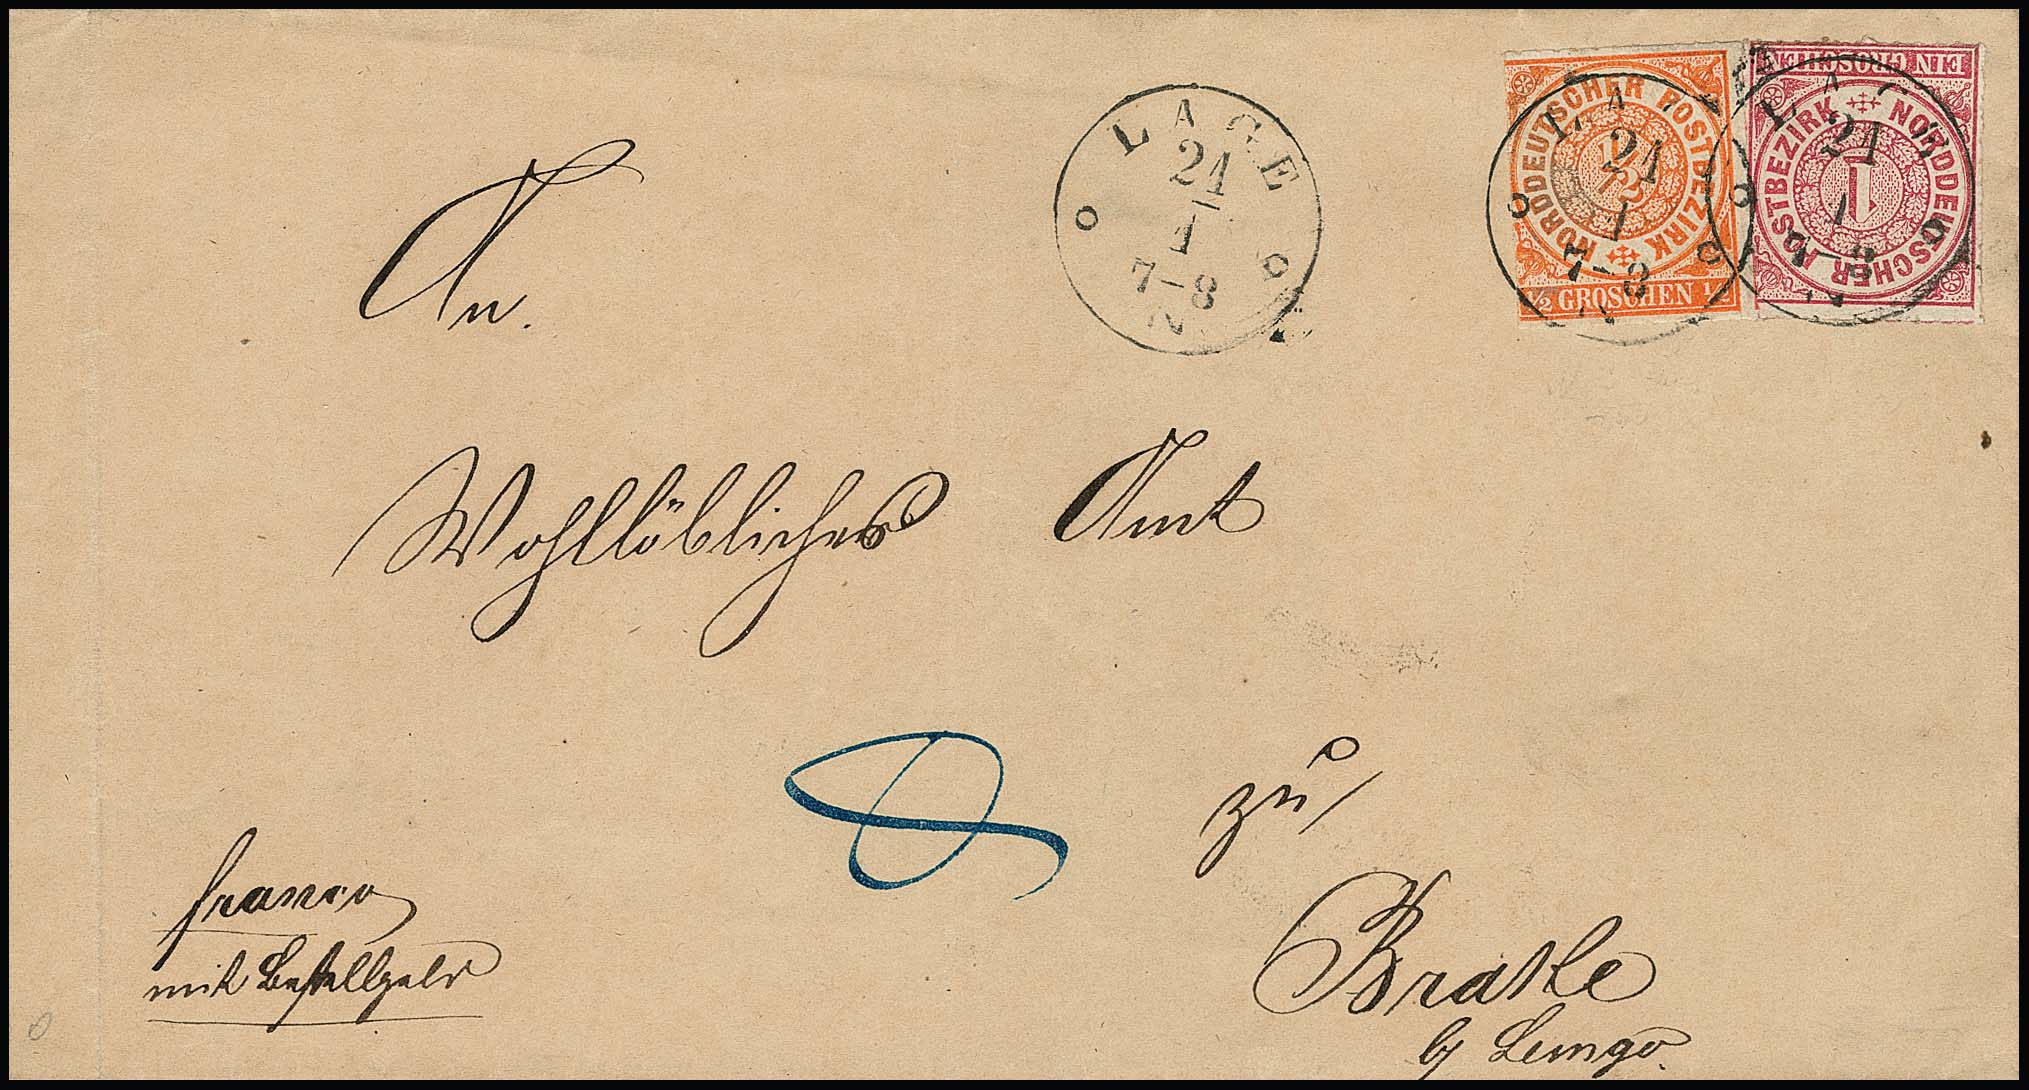 LAGE
21
1
7-8
N
NORDDEUTSCHER POSTBEZIRK
1/2
1/2 GROSCHEN 1/2
LAGE
21
1
7-8
N
EIN GROSCHEN
NORDDEUTSCHER POSTBEZIRK
1
LAGE
21
1
7-8
N
An
Wohllöbliches Amt
zu
Brake
by Lemgo.
franco
mit Bestellgeld